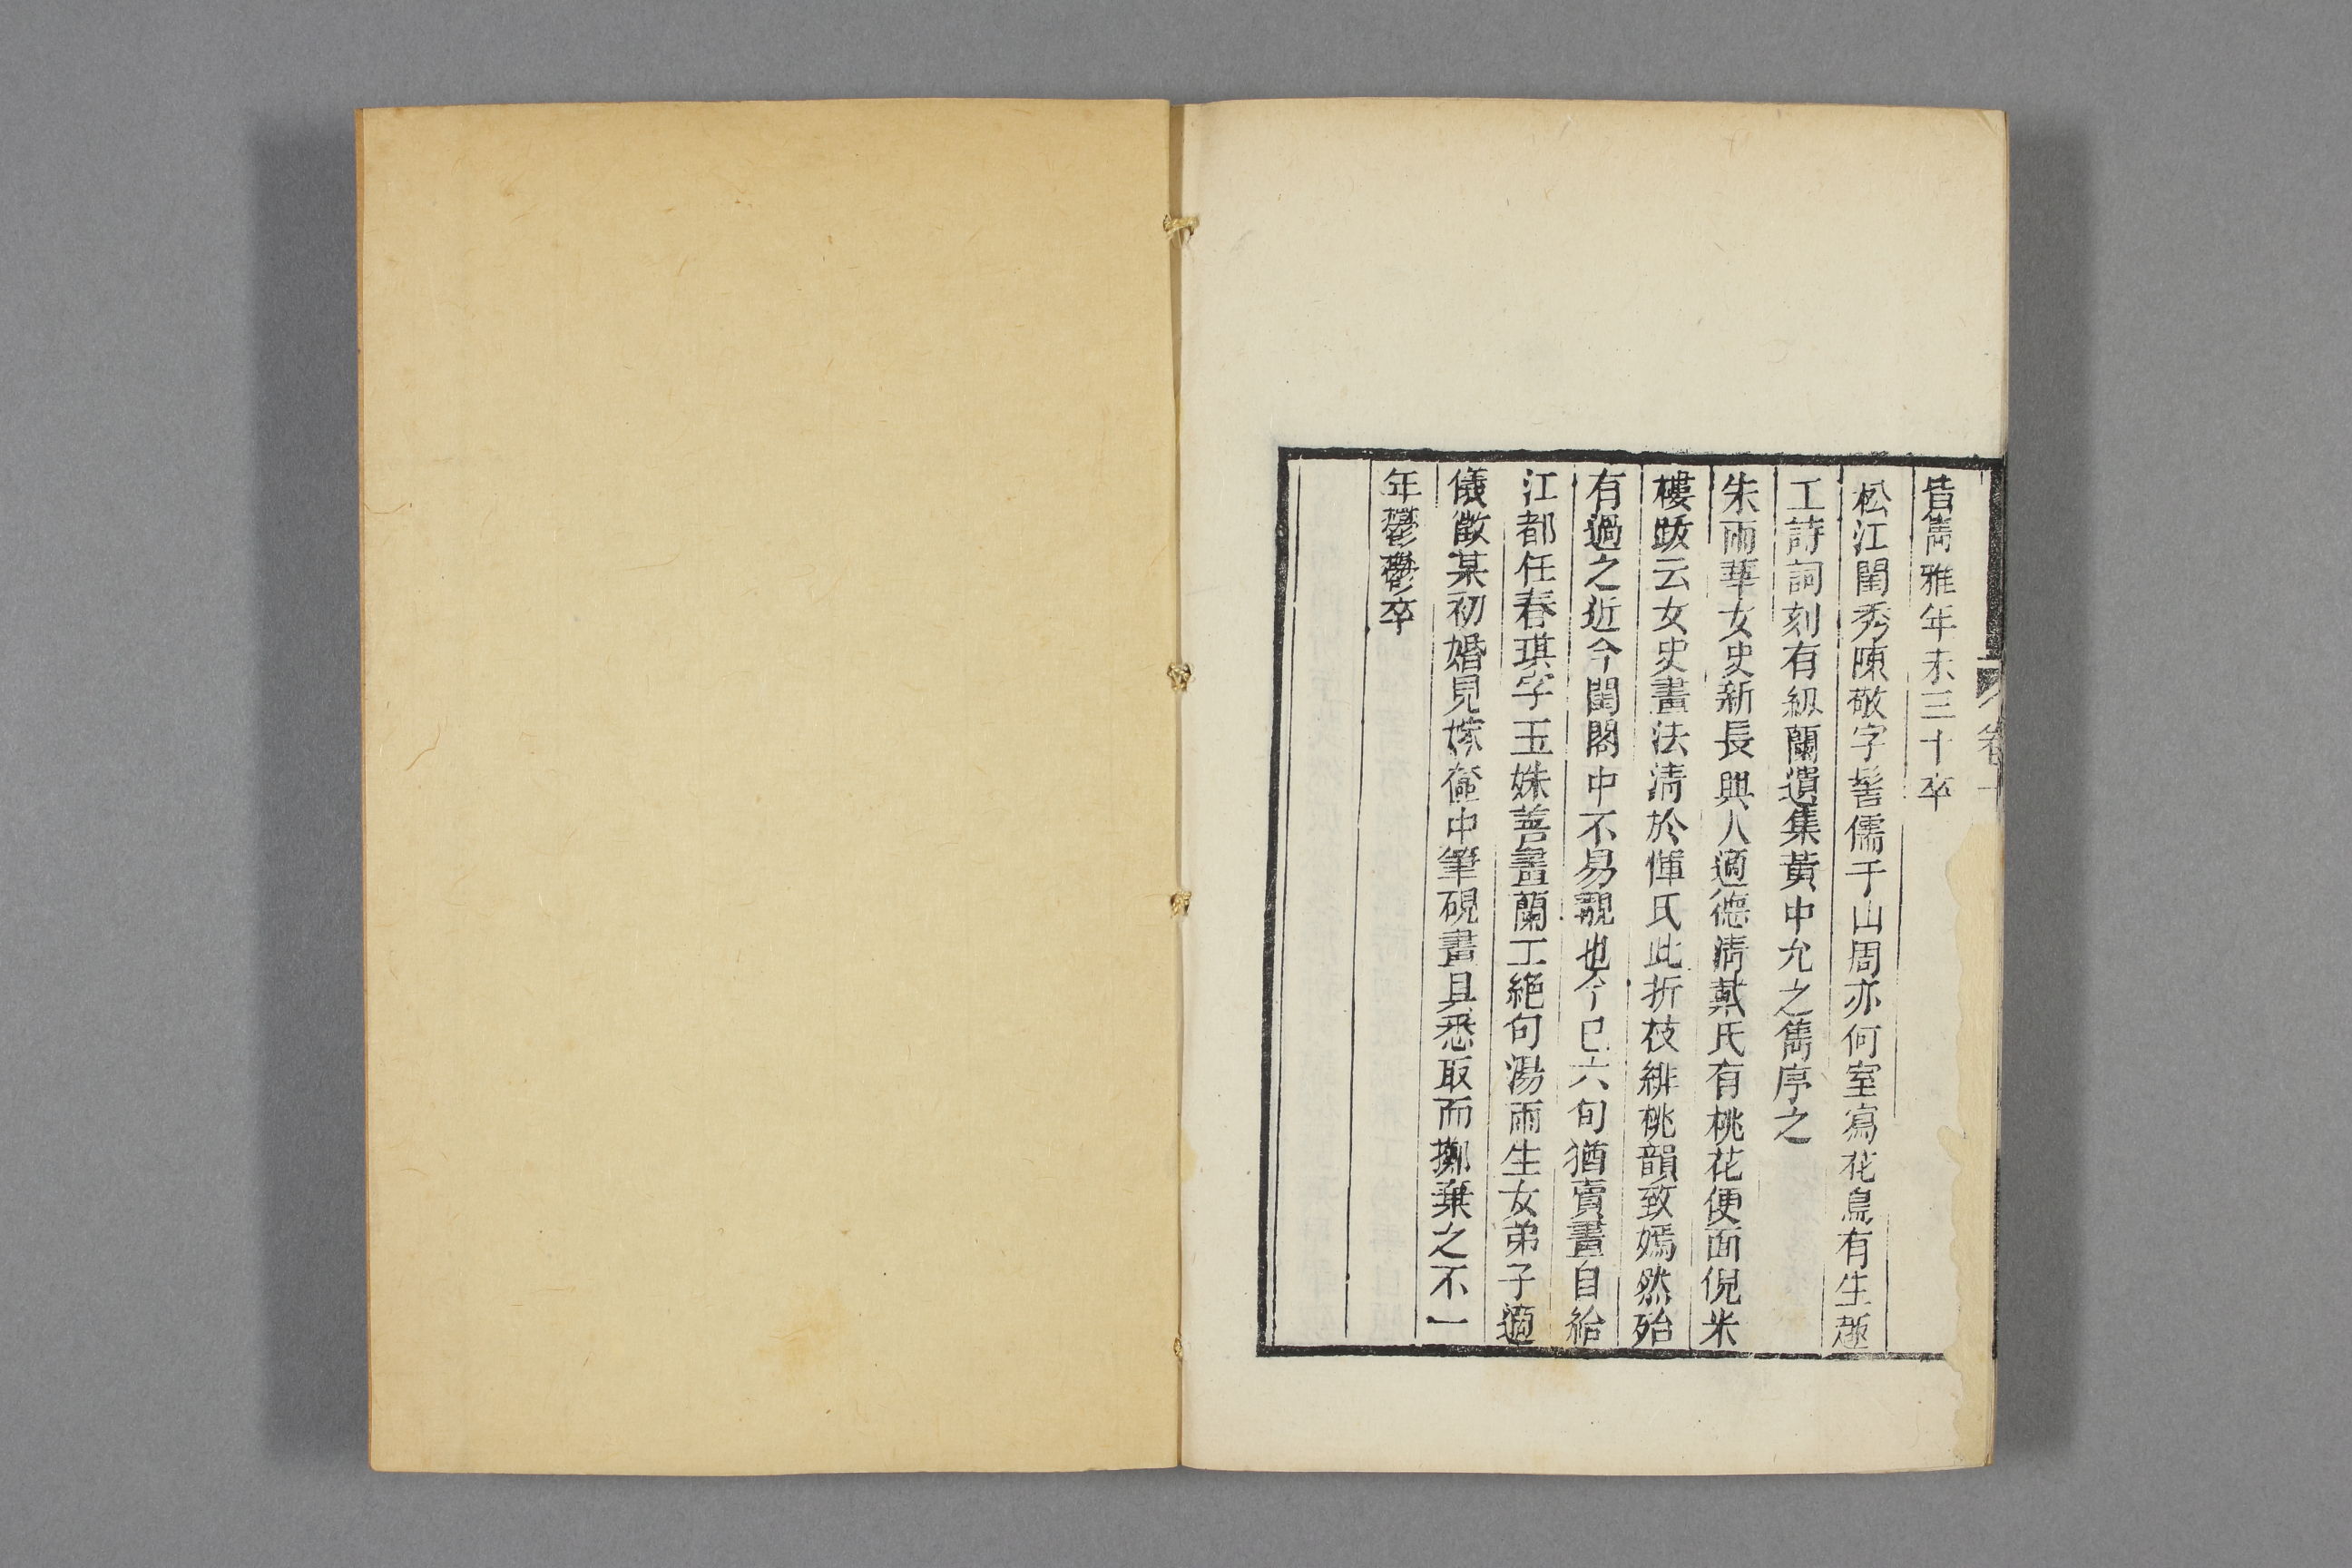 皆雋雅年未三十卒
松江閨秀陳敬字髻儒千山周亦何室寫花鳥有生趣
工詩詞刻有紉蘭遺集黃中允之雋序之
朱雨華女史新長興人適德淸戴氏有桃花便面倪米
樓跋云女史畫法淸於惲氏此折枝緋桃韻致嫣然殆
有過之近今閨閣中不易覯也今巳六旬猶賣畫自給
江都任春琪字玉姝善畫蘭工絕句湯雨生女弟子適
儀徵某初婚見嫁奩中筆硯畫具悉取而擲棄之不一
年鬱鬱卒
卷